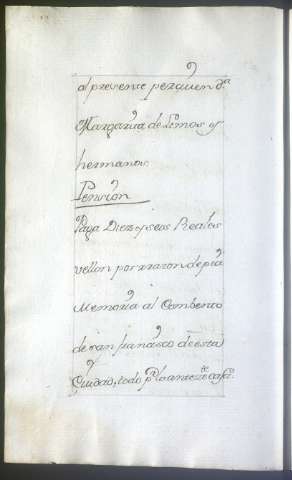 al presente perziuen Dª
Margarita de Lemos y
hermanos.
Pension
Paga Diez y seos Reales
vellon por rrazon de pia
Memoria al Combento
de san franzisco de esta
Ciudad, todo pr